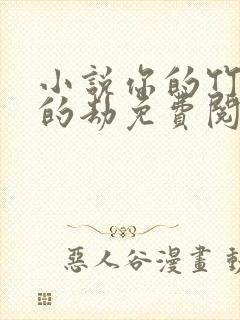 小說你的竹
的劫免費閱
惡人谷漫畫 動